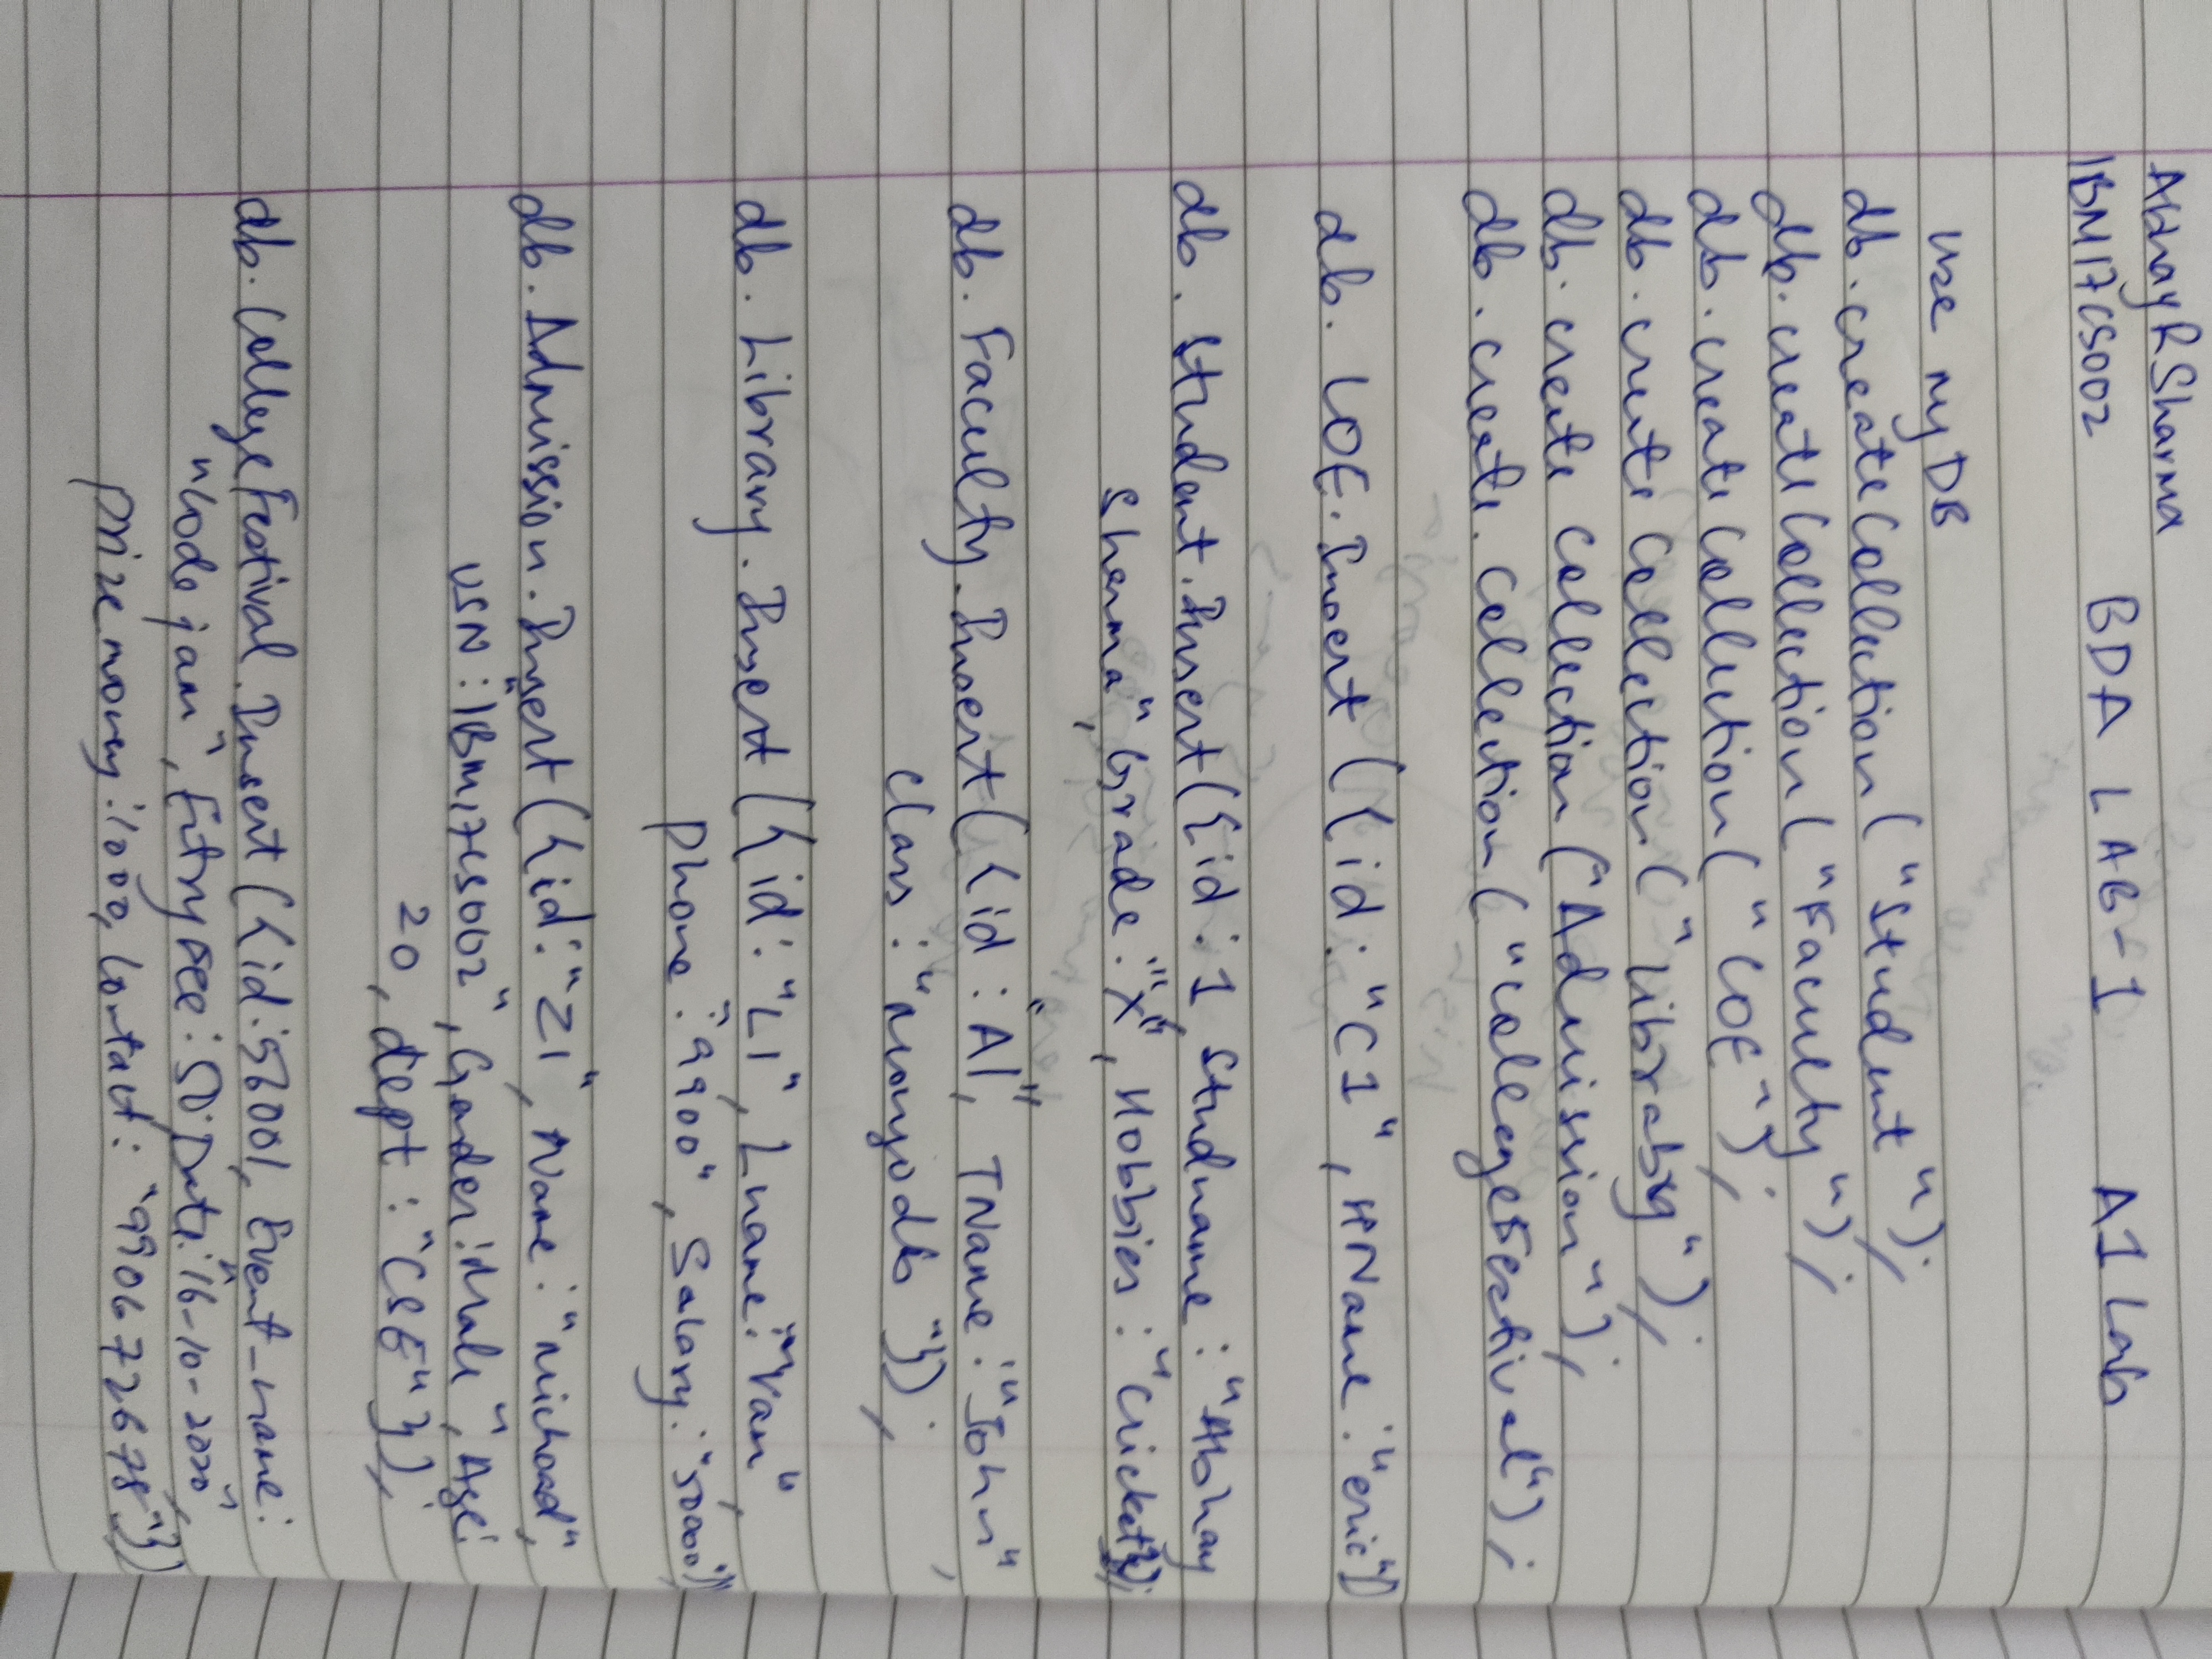 Abhay R Sharma
1BM17CS002 BDA LAB-1 A1 Lab
use myDB
db.createCollection("Student");
db.createCollection("Faculty");
db.createCollection("COE");
db.createCollection("Library");
db.createCollection("Admission");
db.create.Collection("CollegeFestival");
db.COE.Insert({id:"C1", HNane:"eric"})
db.Student.Insert({id:1, Studname:"Abhay
Sharma", Grade:"X", Hobbies:"Cricket"});
db.Faculty.Insert({id:"A1", TName:"John",
class:"Mongodb"});
db.Library.Insert({id:"L1", Lname:"Van",
phone:"9900", Salary:"50000"})
db.Admission.Insert({id:"Z1", Name:"Michoad",
USN:"1BM17CS002", Gender:"Male", Age:
20, dept:"CSE"});
db.CollegeFestival.Insert({id:56001, Event-name:
"Codejam", Entryfee:50, Date:"16-10-2020",
prizemoney:1000, Contact:"9906772678"})